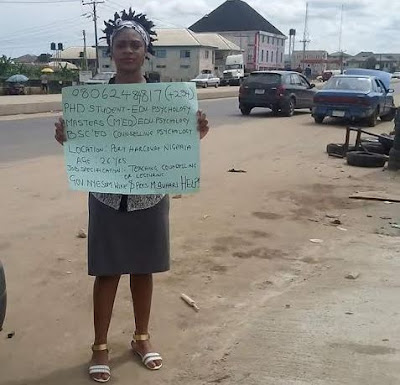 08062448817 (+234)
PHD STUDENT - EDU PSYCHOLOGY
MASTERS (MED) EDU PSYCHOLOGY
BSC'ED COUNSELLING PSYCHOLOGY
LOCATION: PORT HARCOURT NIGERIA
AGE: 26 YRS
JOB SPECIFICATION: TEACHING, COUNSELLING
OR LECTURING
GOV. NYESOM WIKE & PRES M. BUHARI HELP!